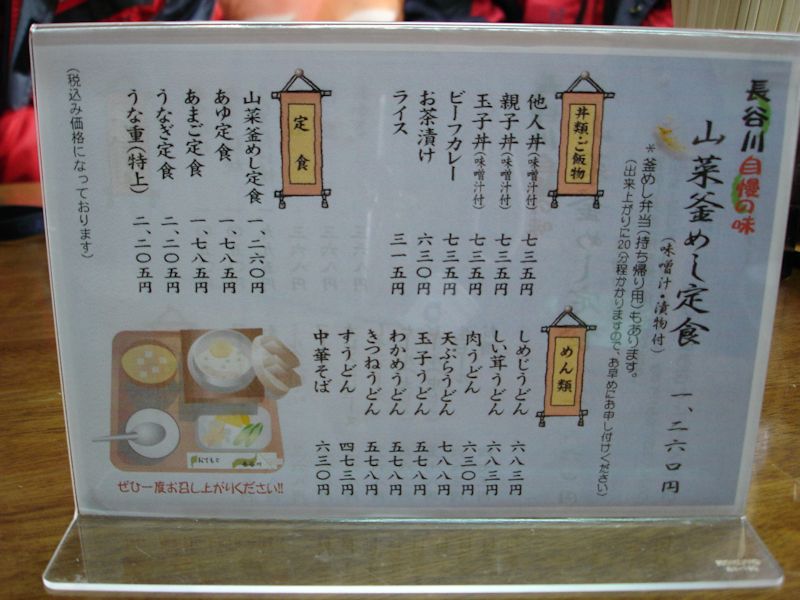 長谷川自慢の味
山菜釜めし定食 一、二六〇円
(味噌汁・漬物付)
＊釜めし弁当(持ち帰り用)もあります。
(出来上がりに20分程かかりますので、お早めにお申し付けください)
丼類・ご飯物
他人丼(味噌汁付) 七三五円
親子丼(味噌汁付) 七三五円
玉子丼(味噌汁付) 七三五円
ビーフカレー 七三五円
お茶漬け 六三〇円
ライス 三一五円
定食
山菜釜めし定食 一、二六〇円
あゆ定食 一、七八五円
あまご定食 一、七八五円
うなぎ定食 二、二〇五円
うな重(特上) 二、二〇五円
(税込み価格になっております)
めん類
しめじうどん 六八三円
しい茸うどん 六八三円
肉うどん 六三〇円
天ぷらうどん 七八八円
玉子うどん 五七八円
わかめうどん 五七八円
きつねうどん 五七八円
すうどん 四七三円
中華そば 六三〇円
おてもと
ぜひ一度お召し上がりください!!